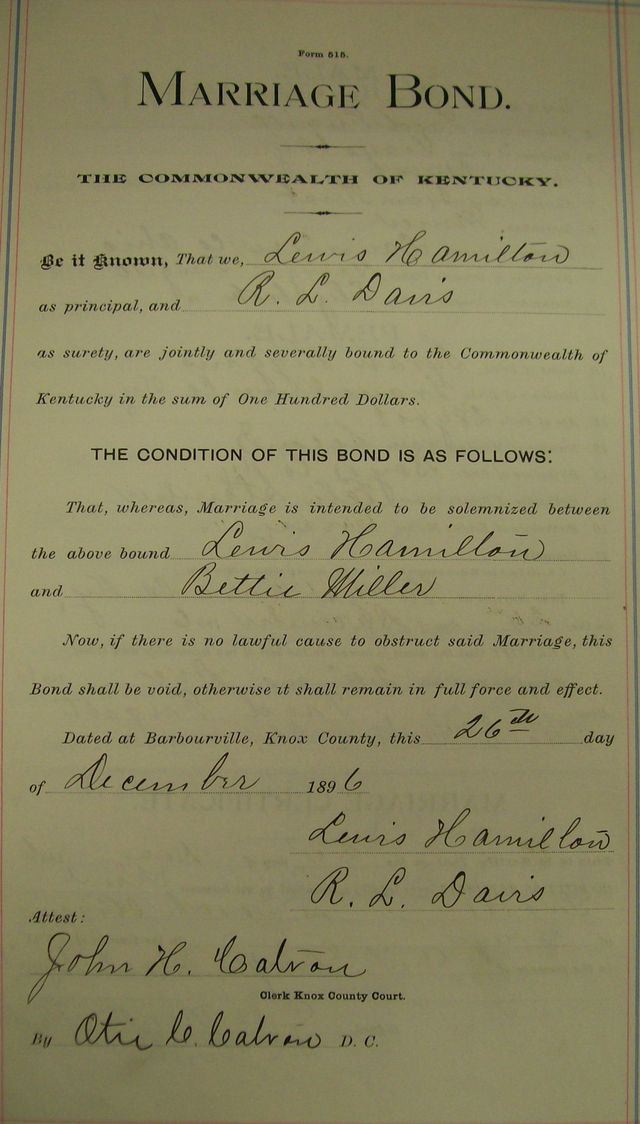 Form 515.
MARRIAGE BOND.
THE COMMONWEALTH OF KENTUCKY.
Be it Known, That we, Lewis Hamilton
as principal, and R. L. Davis
as surety, are jointly and severally bound to the Commonwealth of
Kentucky in the sum of One Hundred Dollars.
THE CONDITION OF THIS BOND IS AS FOLLOWS:
That, whereas, Marriage is intended to be solemnized between
the above bound Lewis Hamilton
and Bettie Miller
Now, if there is no lawful cause to obstruct said Marriage, this
Bond shall be void, otherwise it shall remain in full force and effect.
Dated at Barbourville, Knox County, this 26th day
of December 1896
Lewis Hamilton
R. L. Davis
Attest:
John H. Catron
Clerk Knox County Court.
By C. Catron D. C.